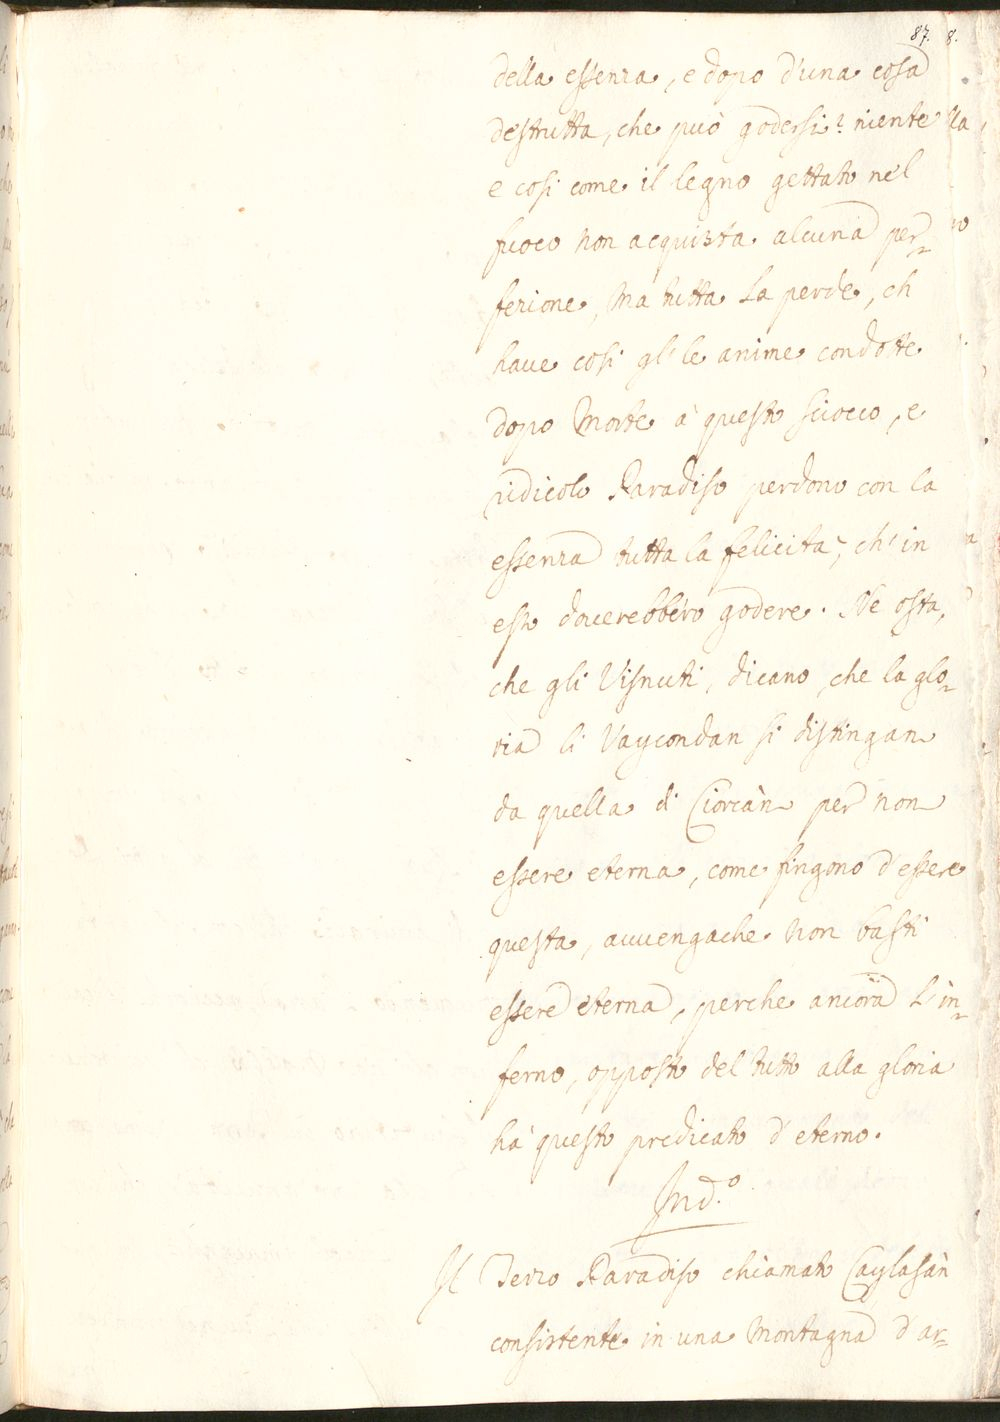 87. 8.
della essenza, e dopo d'una cosa
destrutta, che può godersi? niente
e cosi come il legno gettato nel
fuoco non acquista alcuna per-
fezione, ma tutta la perde, ch
have cosi gl' le anime condotte
dopo morte à questo sciocco, e
ridicolo Paradiso perdono con la
essenza tutta la felicità, ch' in
esso doverebbero godere. Ne osta,
che gli Visnuti, dicano, che la glo-
ria li Vaycondan si distingan
da quella di Ciorcàn per non
essere eterna, come fingono d'essere
questa, auuengache non basti
essere eterna, perche ancora l'in-
ferno, opposto del tutto alla gloria
ha questo predicato d'eterno.
Ind.o
Il Terzo Paradiso chiamato Caylasàn
consistente in una montagna d'ar-